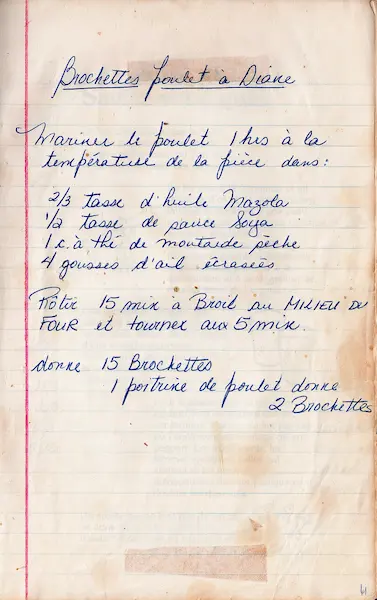 Brochettes poulet à Diane
Mariner le poulet 1 hrs à la
température de la pièce dans:
2/3 tasse d'huile Mazola
1/2 tasse de sauce Soya
1 c. à thé de moutarde sèche
4 gousses d'ail écrasées
Rôtir 15 min à Broil au MILIEU DU
FOUR et tourner aux 5 min.
donne 15 Brochettes
1 poitrine de poulet donne
2 Brochettes